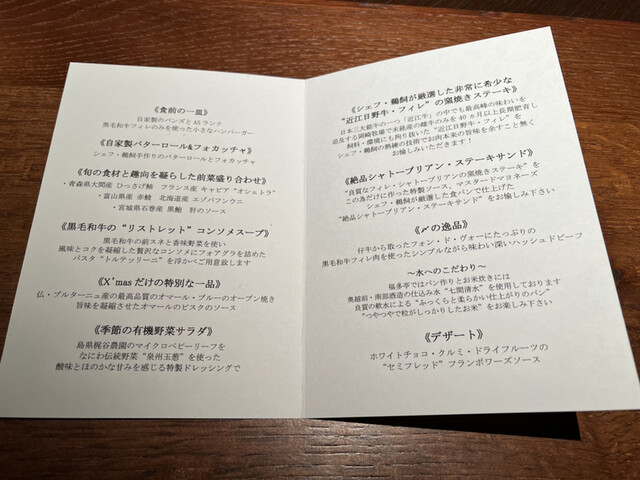 《食前の一皿》
自家製のバンズとA5ランク
黒毛和牛フィレのみを使った小さなハンバーガー
《自家製バターロール&フォカッチャ》
シェフ・鵜飼手作りのバターロールとフォカッチャ
《旬の食材と趣向を凝らした前菜盛り合わせ》
・青森県大間産 ひっさげ鮪 フランス産 キャビア“オシェトラ”
・富山県産 赤鯥 北海道産 エゾバフンウニ
・宮城県石巻産 黒鮑 肝のソース
《黒毛和牛の“リストレット”コンソメスープ》
黒毛和牛の前スネと香味野菜を使い
風味とコクを凝縮した贅沢なコンソメにフォアグラを詰めた
パスタ“トルテッリーニ”を浮かべご用意致します
《X’masだけの特別な一品》
仏・ブルターニュ産の最高品質のオマール・ブルーのオーブン焼き
旨味を凝縮させたオマールのビスクのソース
《季節の有機野菜サラダ》
島県梶谷農園のマイクロベビーリーフを
なにわ伝統野菜“泉州玉葱”を使った
酸味とほのかな甘みを感じる特製ドレッシングで
《シェフ・鵜飼が厳選した非常に希少な
“近江日野牛・フィレ”の窯焼きステーキ》
日本三大銘牛の一つ「近江牛」の中でも最高峰の味わいを
追及する岡崎牧場で未経産の雌牛のみを40カ月以上長期肥育し
飼料・環境にも拘り抜いた“近江日野牛・フィレ”を
シェフ・鵜飼の熟練の技術でお肉本来の旨味を余すこと無く
お愉しみいただきます!
《絶品シャトーブリアン・ステーキサンド》
“良質なフィレ・シャトーブリアンの窯焼きステーキ”を
この為だけに作った特製ソース、マスタードマヨネーズ
シェフ・鵜飼が厳選した食パンで仕上げた
“絶品シャトーブリアン・ステーキサンド”をお愉しみ下さい
《〆の逸品》
仔牛から取ったフォン・ド・ヴォーにたっぷりの
黒毛和牛フィレ肉を使ったシンプルながら味わい深いハッシュドビーフ
~水へのこだわり~
福多亭ではパン作りとお米炊きには
奥越前・南部酒造の仕込み水“七間清水”を使用しております
良質の軟水による“ふっくらと柔らかい仕上がりのパン”
“つやつやで粒がしっかりしたお米”をお楽しみ下さい
《デザート》
ホワイトチョコ・クルミ・ドライフルーツの
“セミフレッド”フランボワーズソース